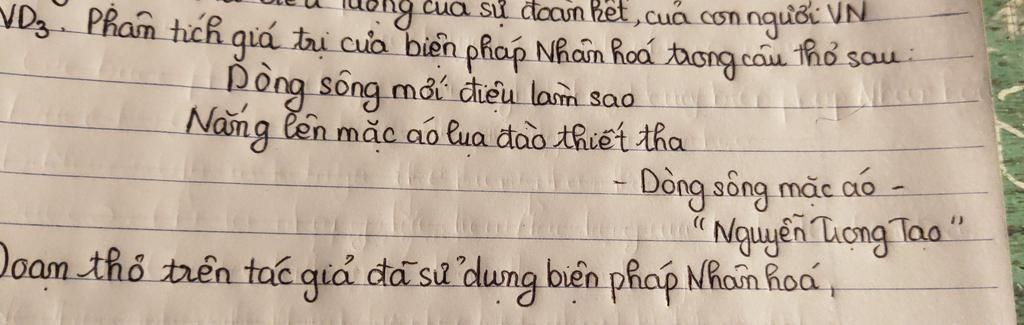 lượng của sự đoàn kết, của con người VN
VD3. Phân tích giá trị của biện pháp Nhân hoá trong câu thơ sau:
Dòng sông mới điệu làm sao
Nắng lên mặc áo lụa đào thiết tha
- Dòng sông mặc áo -
"Nguyễn Trọng Tạo"
Đoạn thơ trên tác giả đã sử dụng biện pháp Nhân hoá,